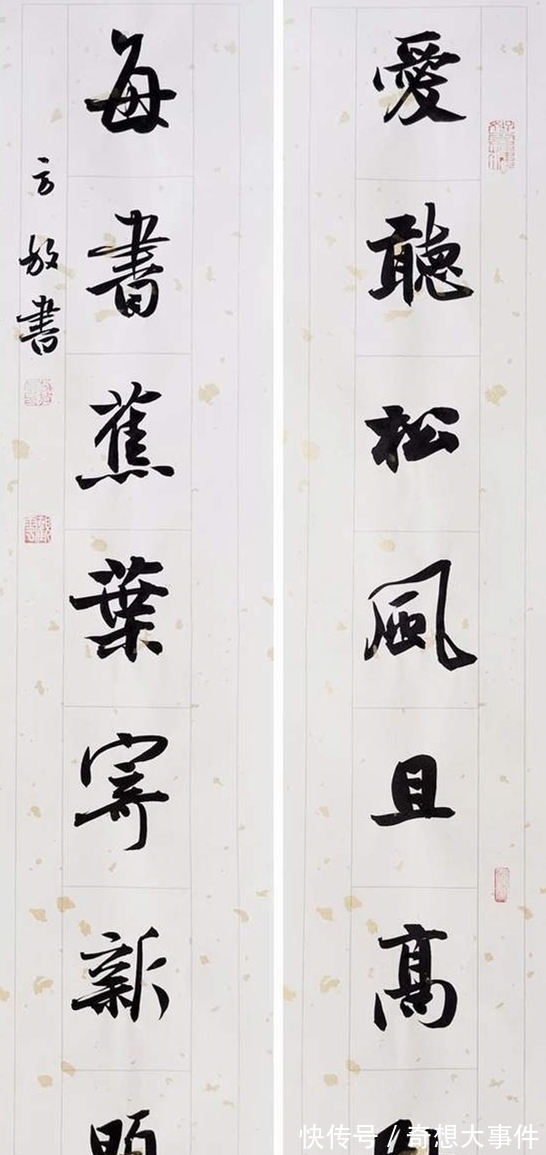 愛聽松風且高
每書蕉葉寄新
方放書
快传号 / 奇想大事件